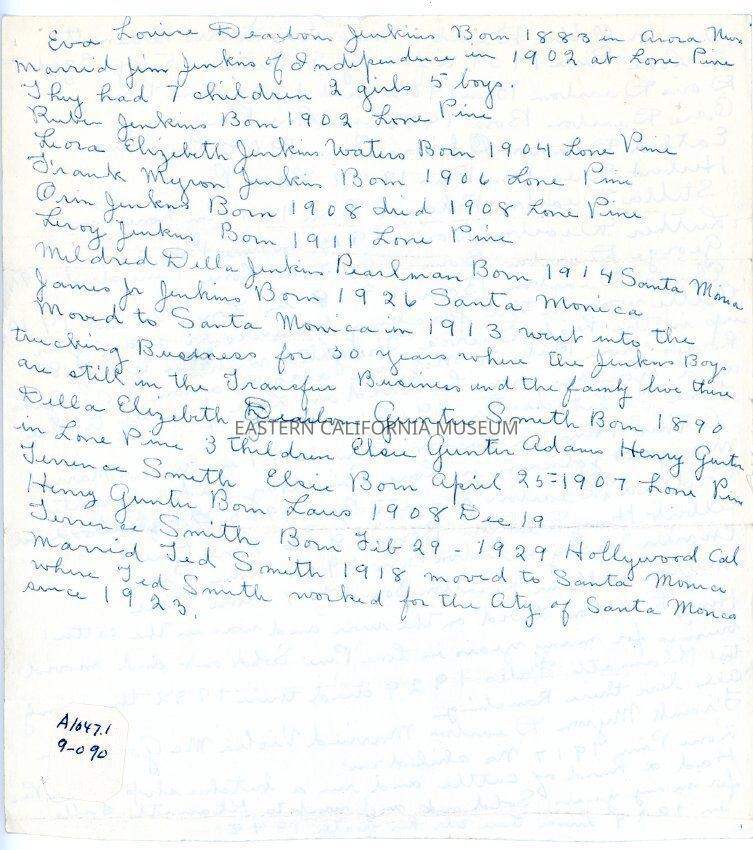 Eva Louise Dearborn Jenkins Born 1883 in Arora Nev
Marrid Jim Jenkins of Independence in 1902 at Lone Pine
They had 7 children 2 girls 5 boys.
Ruben Jenkins Born 1902 Lone Pine
Leora Elizebeth Jenkins Waters Born 1904 Lone Pine
Frank Myron Jenkins Born 1906 Lone Pine
Orin Jenkins Born 1908 died 1908 Lone Pine
Leroy Jenkins Born 1911 Lone Pine
Mildred Della Jenkins Pearlman Born 1914 Santa Monica
James Jr Jenkins Born 1926 Santa Monica
Moved to Santa Monica in 1913 went into the
trucking Business for 30 years where the Jenkins Boys
are still in the Transfer Business and the family live there
Della Elizebeth Gunter Smith Born 1890
EASTERN CALIFORNIA MUSEUM
in Lone Pine 3 Children Elsie Gunter Adams Henry Gunter
Terrence Smith Elsie Born April 25-1907 Lone Pine
Henry Gunter Born Laws 1908 Dec 19
Terrence Smith Born Feb 29 - 1929 Hollywood Cal
Marrid Ted Smith 1918 moved to Santa Monica
where Ted Smith worked for the City of Santa Monica
since 1923.
A1047.1
9-090